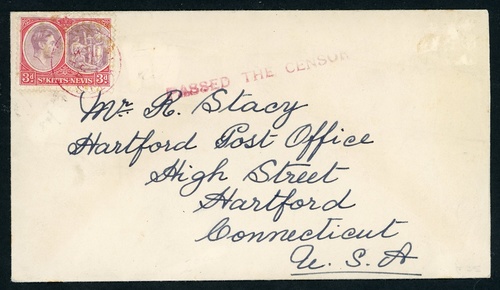 3d ST KITTS-NEVIS 3d
PASSED THE CENSOR
Mr R. Stacy
Hartford Post Office
High Street
Hartford
Connecticut
U. S. A